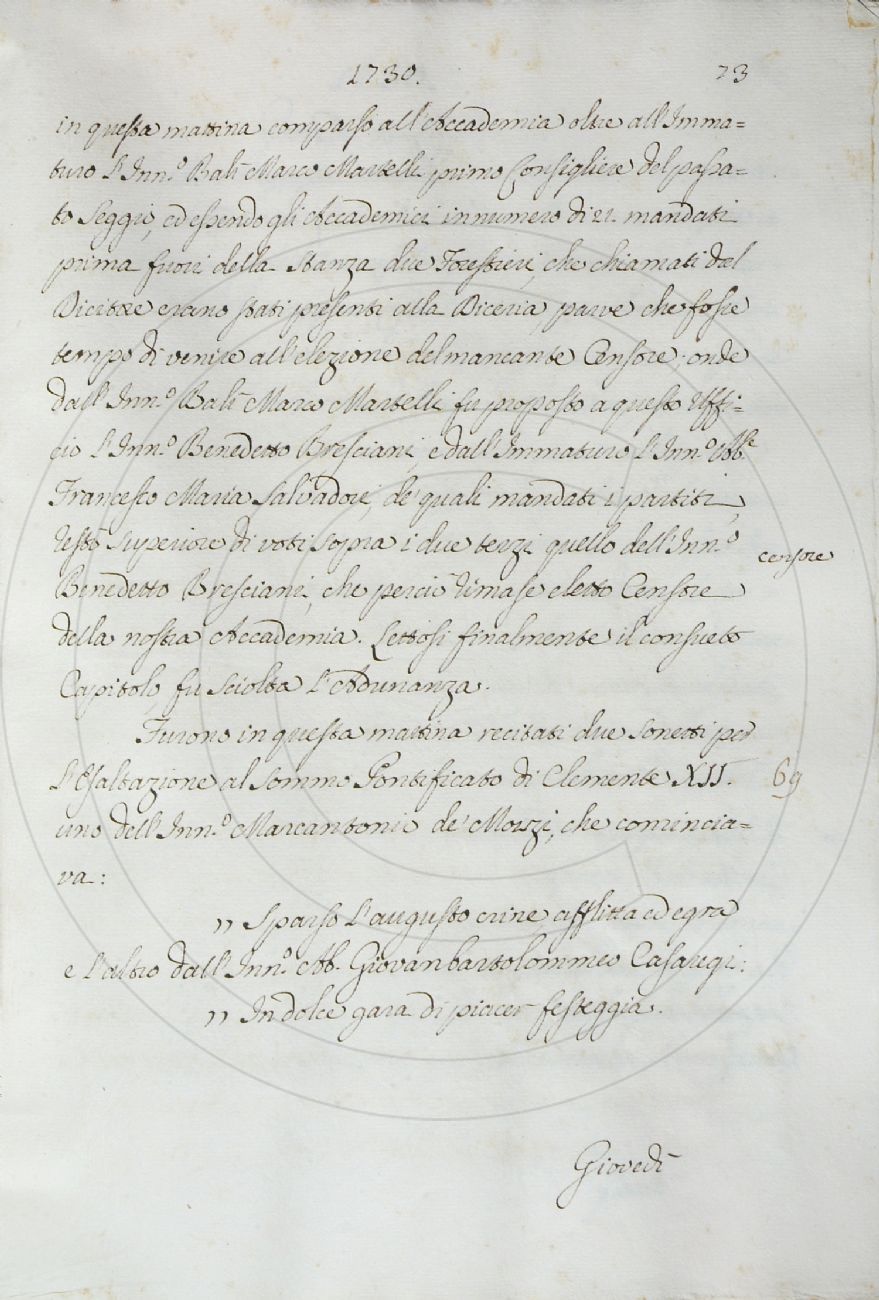 1730. 73
in questa mattina comparso all'Accademia oltre all'Imma=
turo l'Inn.º Balì Marco Martelli primo Consigliere del passa=
to Seggio, ed essendo gli Accademici in numero di 21. mandati
prima fuori della stanza due Forestieri, che chiamati dal
Dicitore erano stati presenti alla Diceria, parve che fosse
tempo di venire all'elezione del mancante Censore; onde
dall'Inn.º Balì Marco Martelli fu proposto a questo Uffi=
cio l'Inn.º Benedetto Bresciani, e dall'Immaturo l'Inn.º Abb.e
Francesco Maria Salvadori, de' quali mandati i partiti,
restò superiore di voti sopra i due terzi quello dell'Inn.º
censore
Benedetto Bresciani, che perciò rimase eletto Censore
della nostra Accademia. Lettosi finalmente il consueto
Capitolo, fu sciolta l'Adunanza.
Furono in questa mattina recitati due Sonetti per
l'Esaltazione al Sommo Pontificato di Clemente XII. 69
uno dell'Inn.º Marcantonio de' Mozzi, che comincia=
va:
,, Sparso l'augusto crine afflitta ed egra
e l'altro dall'Inn.º Ab. Giovanbartolommeo Casaregi:
,, In dolce gara di piacer festeggia.
Giovedì